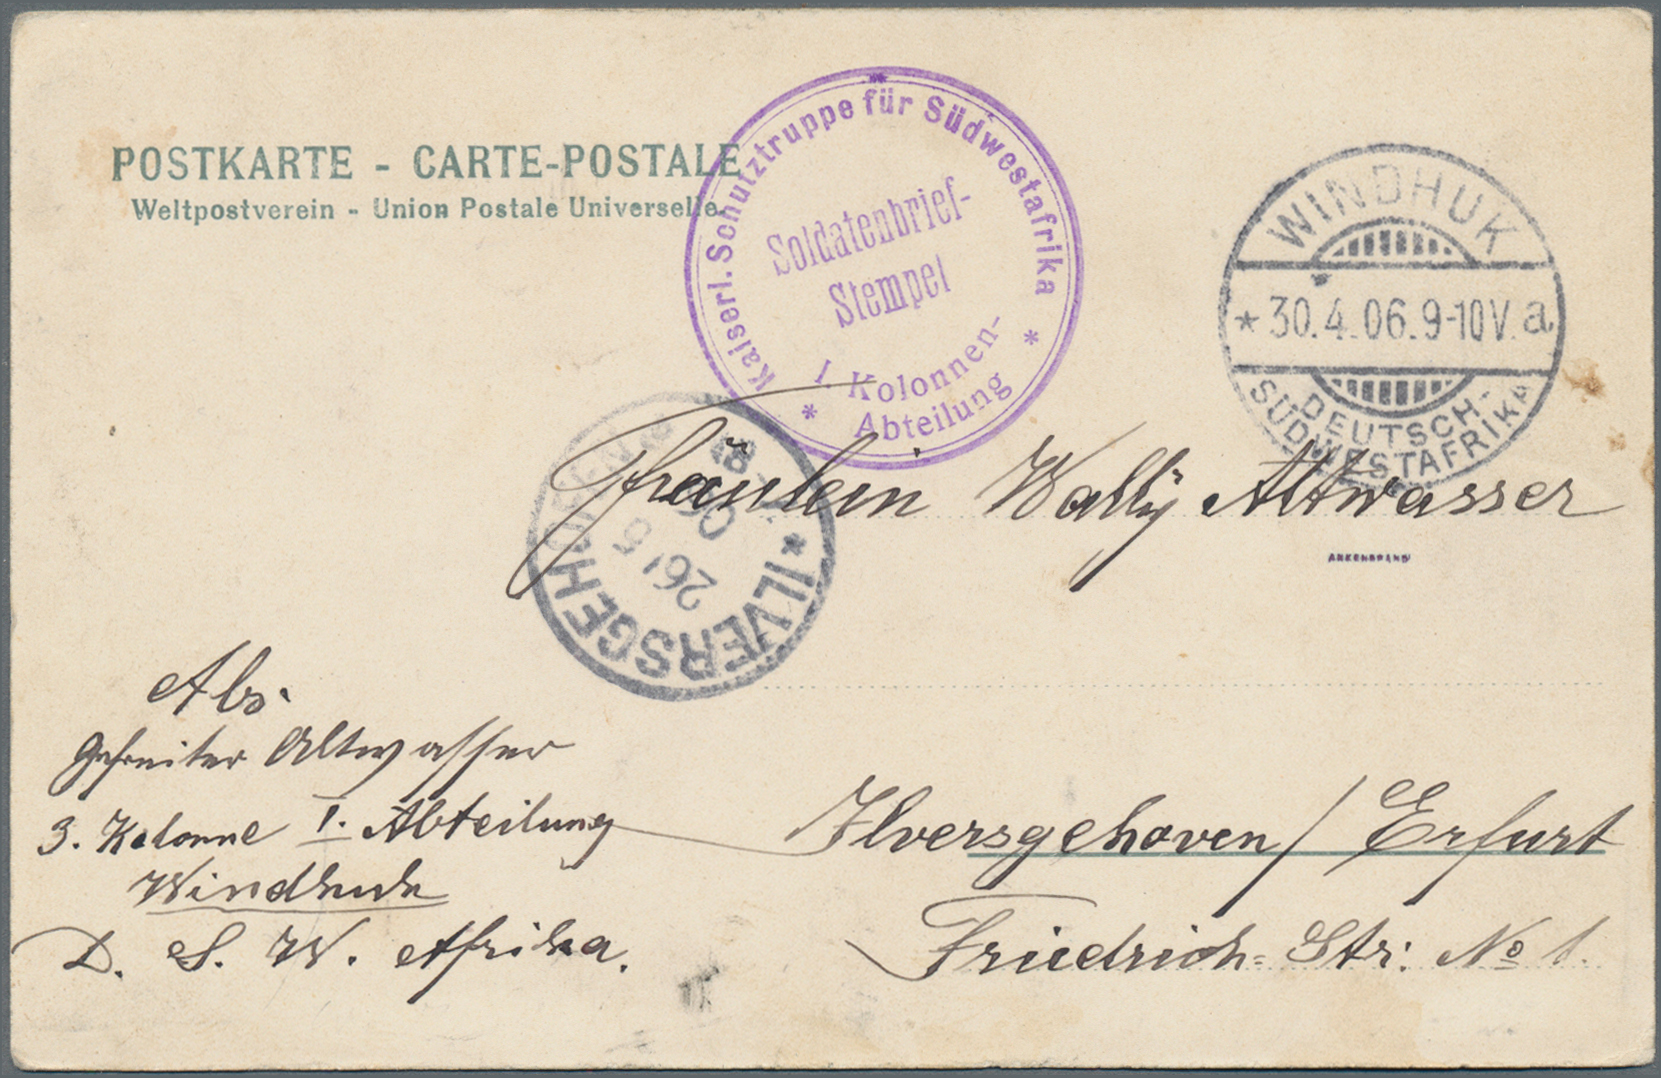 POSTKARTE - CARTE-POSTALE
Weltpostverein - Union Postale Universelle
Kaiserl. Schutztruppe für Südwestafrika
Soldatenbrief-
Stempel
* I Kolonnen- *
Abteilung
WINDHUK
* 30.4.06.9-10V. a
DEUTSCH-
SÜDWESTAFRIKA
* ILVERSGEHOFEN *
26/5
06
Fräulein Wally Altwasser
Abs.
Gefreiter Altwasser
3. Kolonne I. Abteilung
Windhuk
D. S. W. Afrika.
Ilversgehoven / Erfurt
Friedrich-Str: No 1.